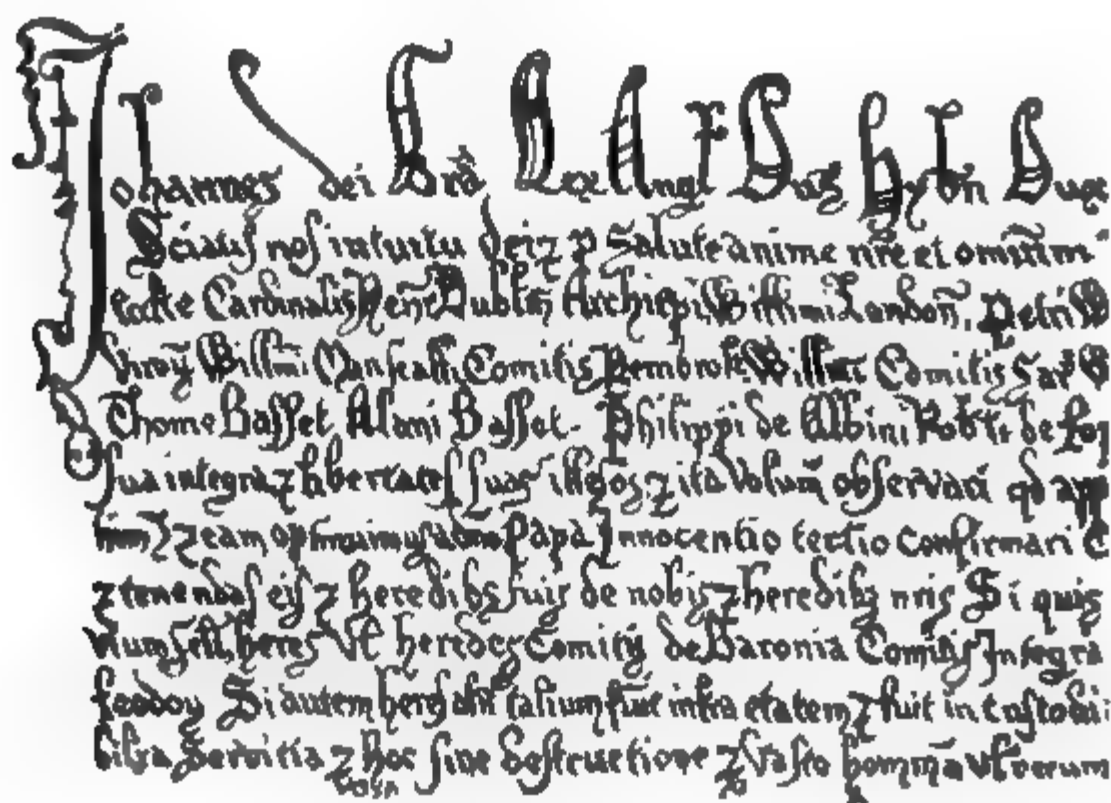 Johannes dei Gra Rex Angl Dns Hybn Dux
Sciatis nos intuitu dei ⁊ p Salute anime nre et omnium
Cardinalis Henr Dublen Archiepi Willimi London, Petri
Willmi Marscalli Comitis Pembrok Willmi Comitis Sar
Thome Basset Alani Basset Philippi de Albini Robti de
sua integra ⁊ libertates suas illesas ⁊ ita volum observari qd
⁊ eam optinuimus a dno Papa Innocentio tertio Confirmari
⁊ tenendas eis ⁊ heredibs suis de nobis ⁊ heredibs nris Si quis
heres vl heredes Comitis de Baronia Comitis Integra
feodoy Si autem heres alic talium fuit infra etatem ⁊ fuit in Custodi
Servitia ⁊ hoc sine destructione ⁊ vasto hominu vl rerum